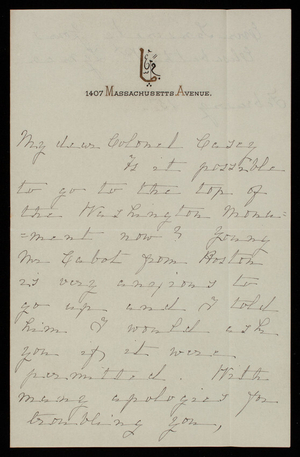 1407 MASSACHUSETTS AVENUE.
My dear Colonel Casey
Is it possible
to go to the top of
the Washington Monu=
=ment now? Young
Mr Cabot from Boston
is very anxious to
go up and I told
him I would ask
you if it were
permitted. With
many apologies for
troubling you,